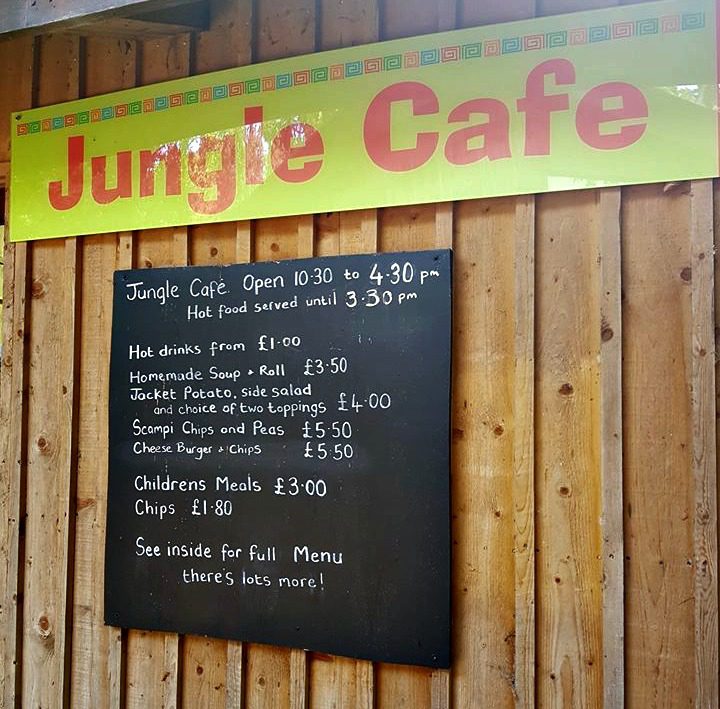 Jungle Cafe
Jungle Café Open 10·30 to 4·30 pm
Hot food served until 3·30 pm
Hot drinks from £1·00
Homemade Soup + Roll £3·50
Jacket Potato, side salad
and choice of two toppings £4·00
Scampi Chips and Peas £5·50
Cheese Burger + Chips £5·50
Childrens Meals £3·00
Chips £1·80
See inside for full Menu
there's lots more!